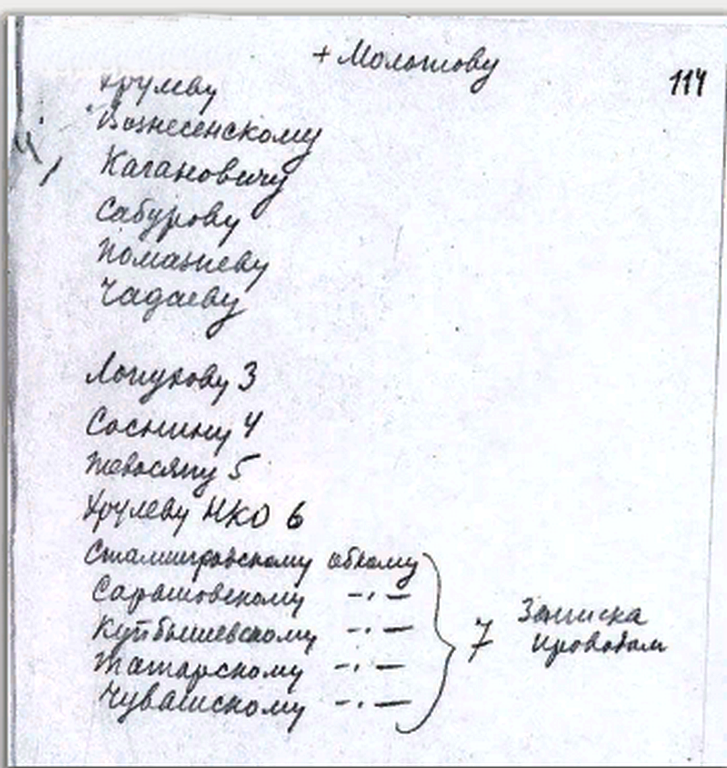 + Молотову
114
Хрулеву
Вознесенскому
Кагановичу
Сабурову
Помазневу
Чадаеву
Лопухову 3
Соснину 4
Тевосяну 5
Хрулеву НКО 6
Сталинградскому обкому
Саратовскому -·-
Куйбышевскому -·-
Татарскому -·-
Чувашскому -·-
7 Записка
проводам